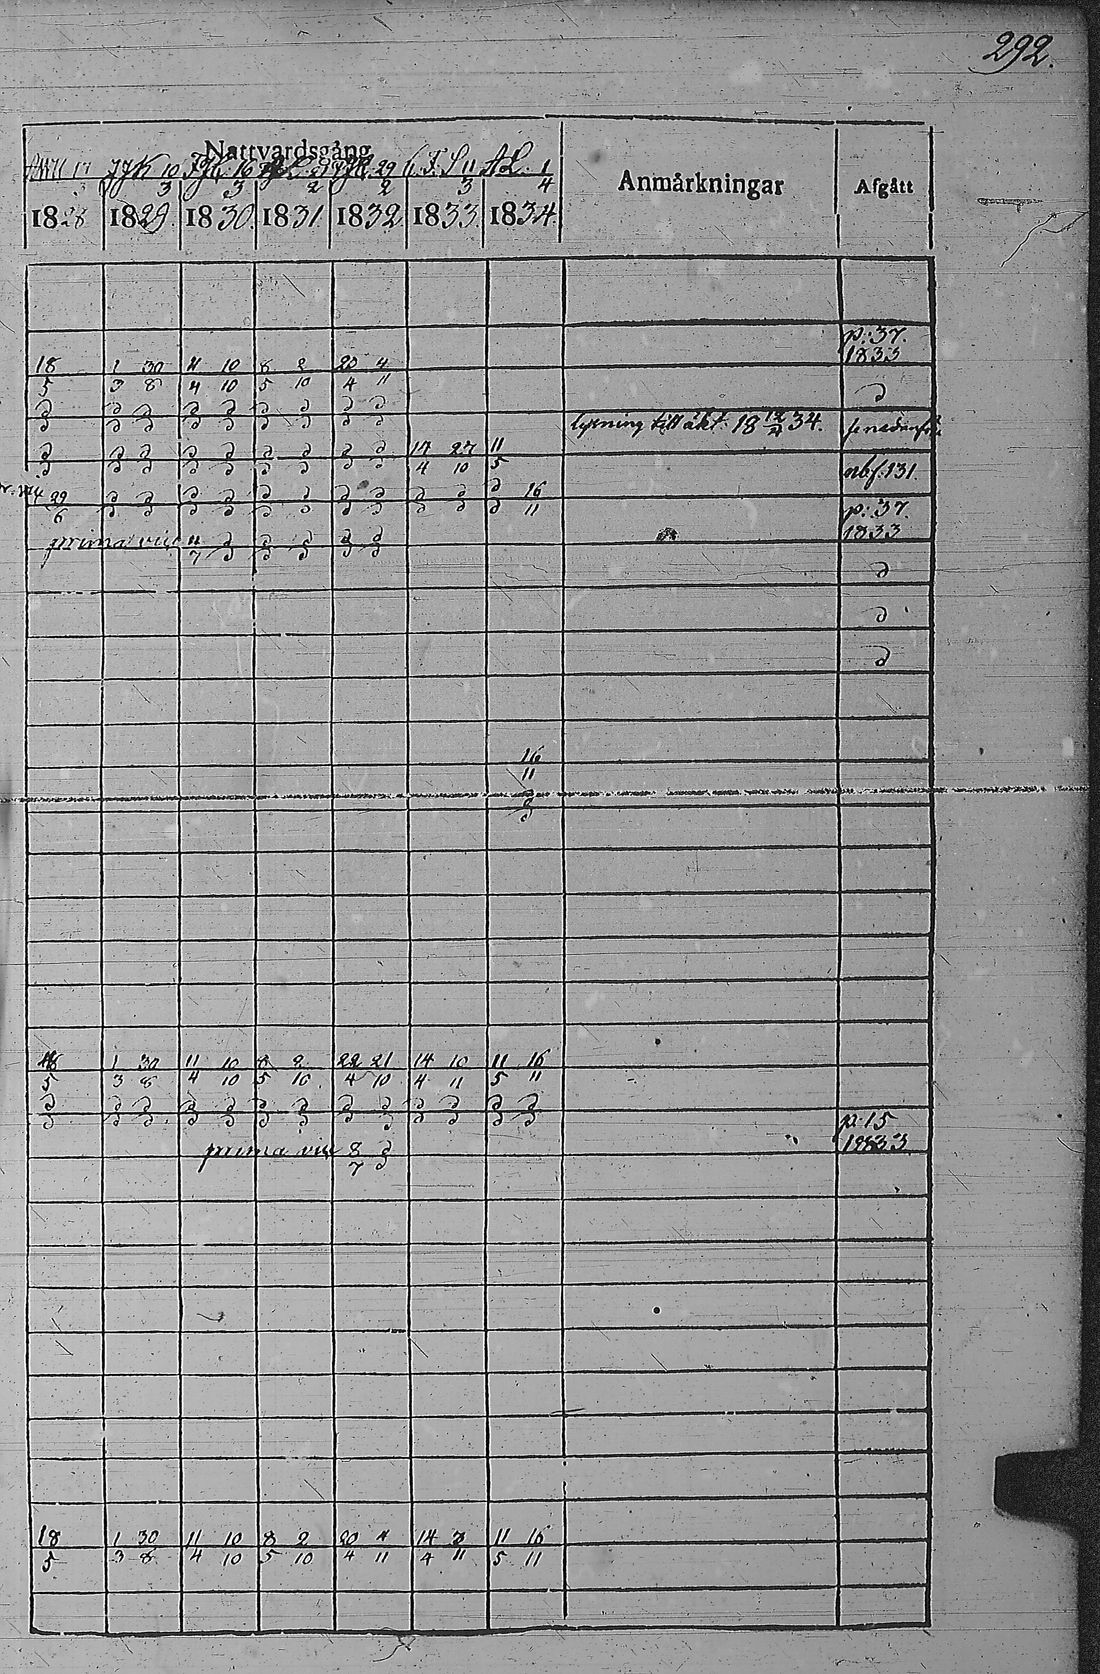 292.
Nattvardsgång
17 JJK 10/3 16/3 2 29/2 F. S 11/3 AL. 1/4
1828 1829. 1830. 1831. 1832. 1833. 1834. Anmärkningar Afgått
p: 37.
18/5 1/3 30/8 11/4 10/10 8/5 2/10 20/4 4/11 1833
d d d d d d d d d d
lysning till äkt. 18 12/4 34.
d d d d d d d d d 14/4 27/10 11/5
131.
29/6 d d d d d d d d d d d 16/11
p: 37.
prima vice 11/7 d d d d d 1833
d
d
d
16/11
d
18/5 1/3 30/8 11/4 10/10 8/5 2/10 22/4 21/10 14/4 10/11 11/5 16/11
d d d d d d d d d d d d d
p: 15
prima vice 8/7 d 1833
18/5 1/3 30/8 11/4 10/10 8/5 2/10 20/4 4/11 14/4 3/11 11/5 16/11